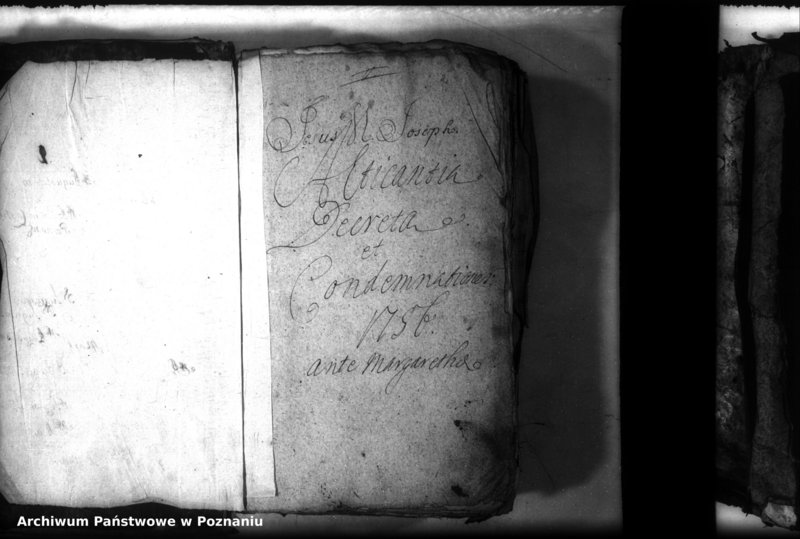 Jesus M. Joseph.
Alticantia
Decreta
et
Condemnationes
1756.
ante Margaretha
Archiwum Państwowe w Poznaniu